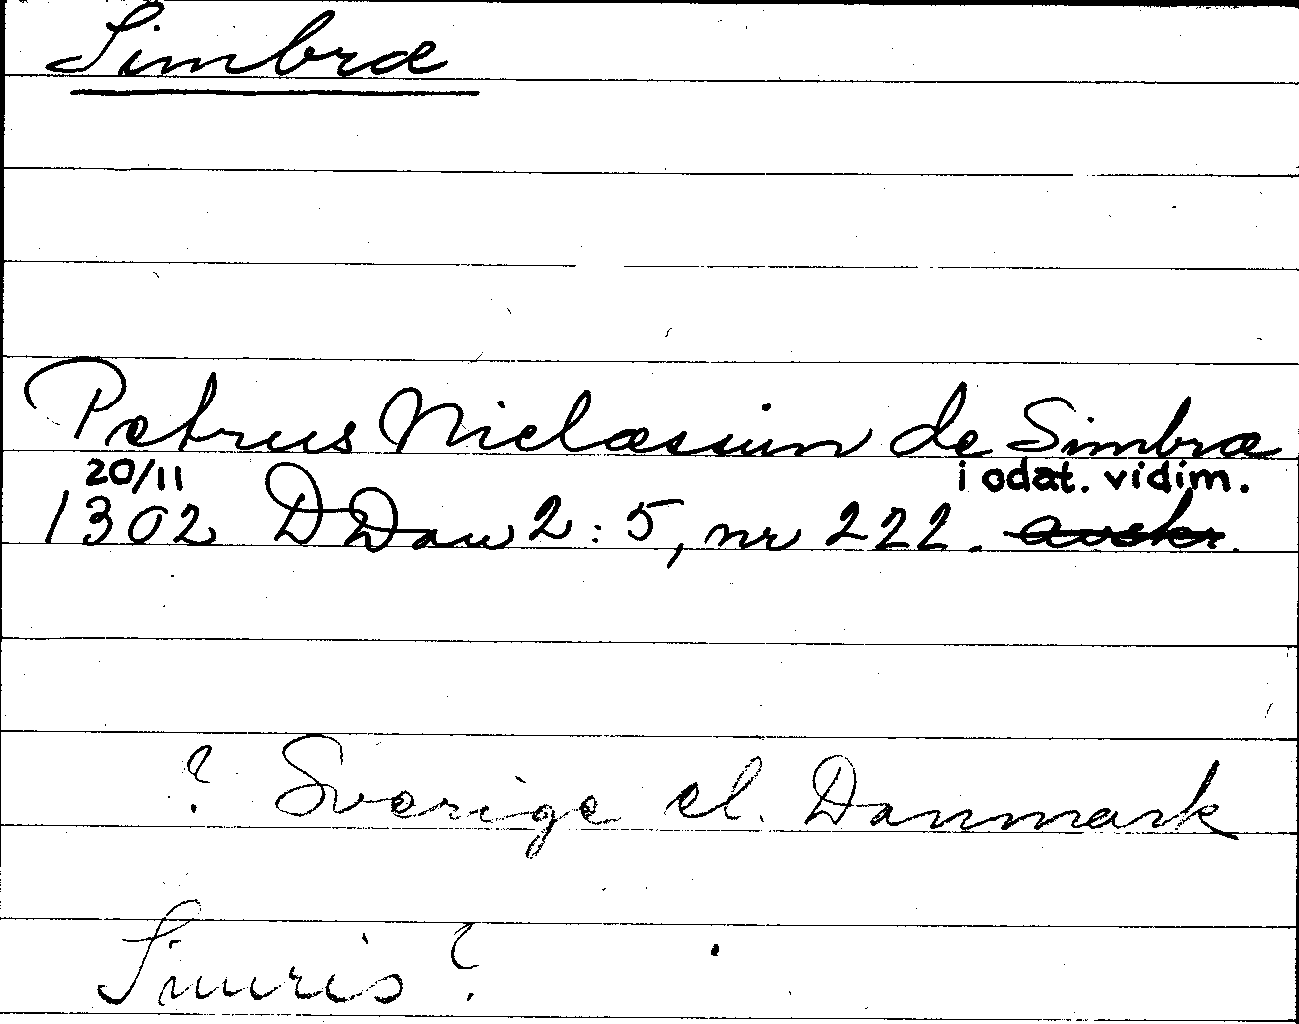 Simbræ
Petrus Niclæssun de Simbræ
20/11 i odat. vidim.
1302 DDan 2:5, nr 222. avskr.
? Sverige el. Danmark
Simris?